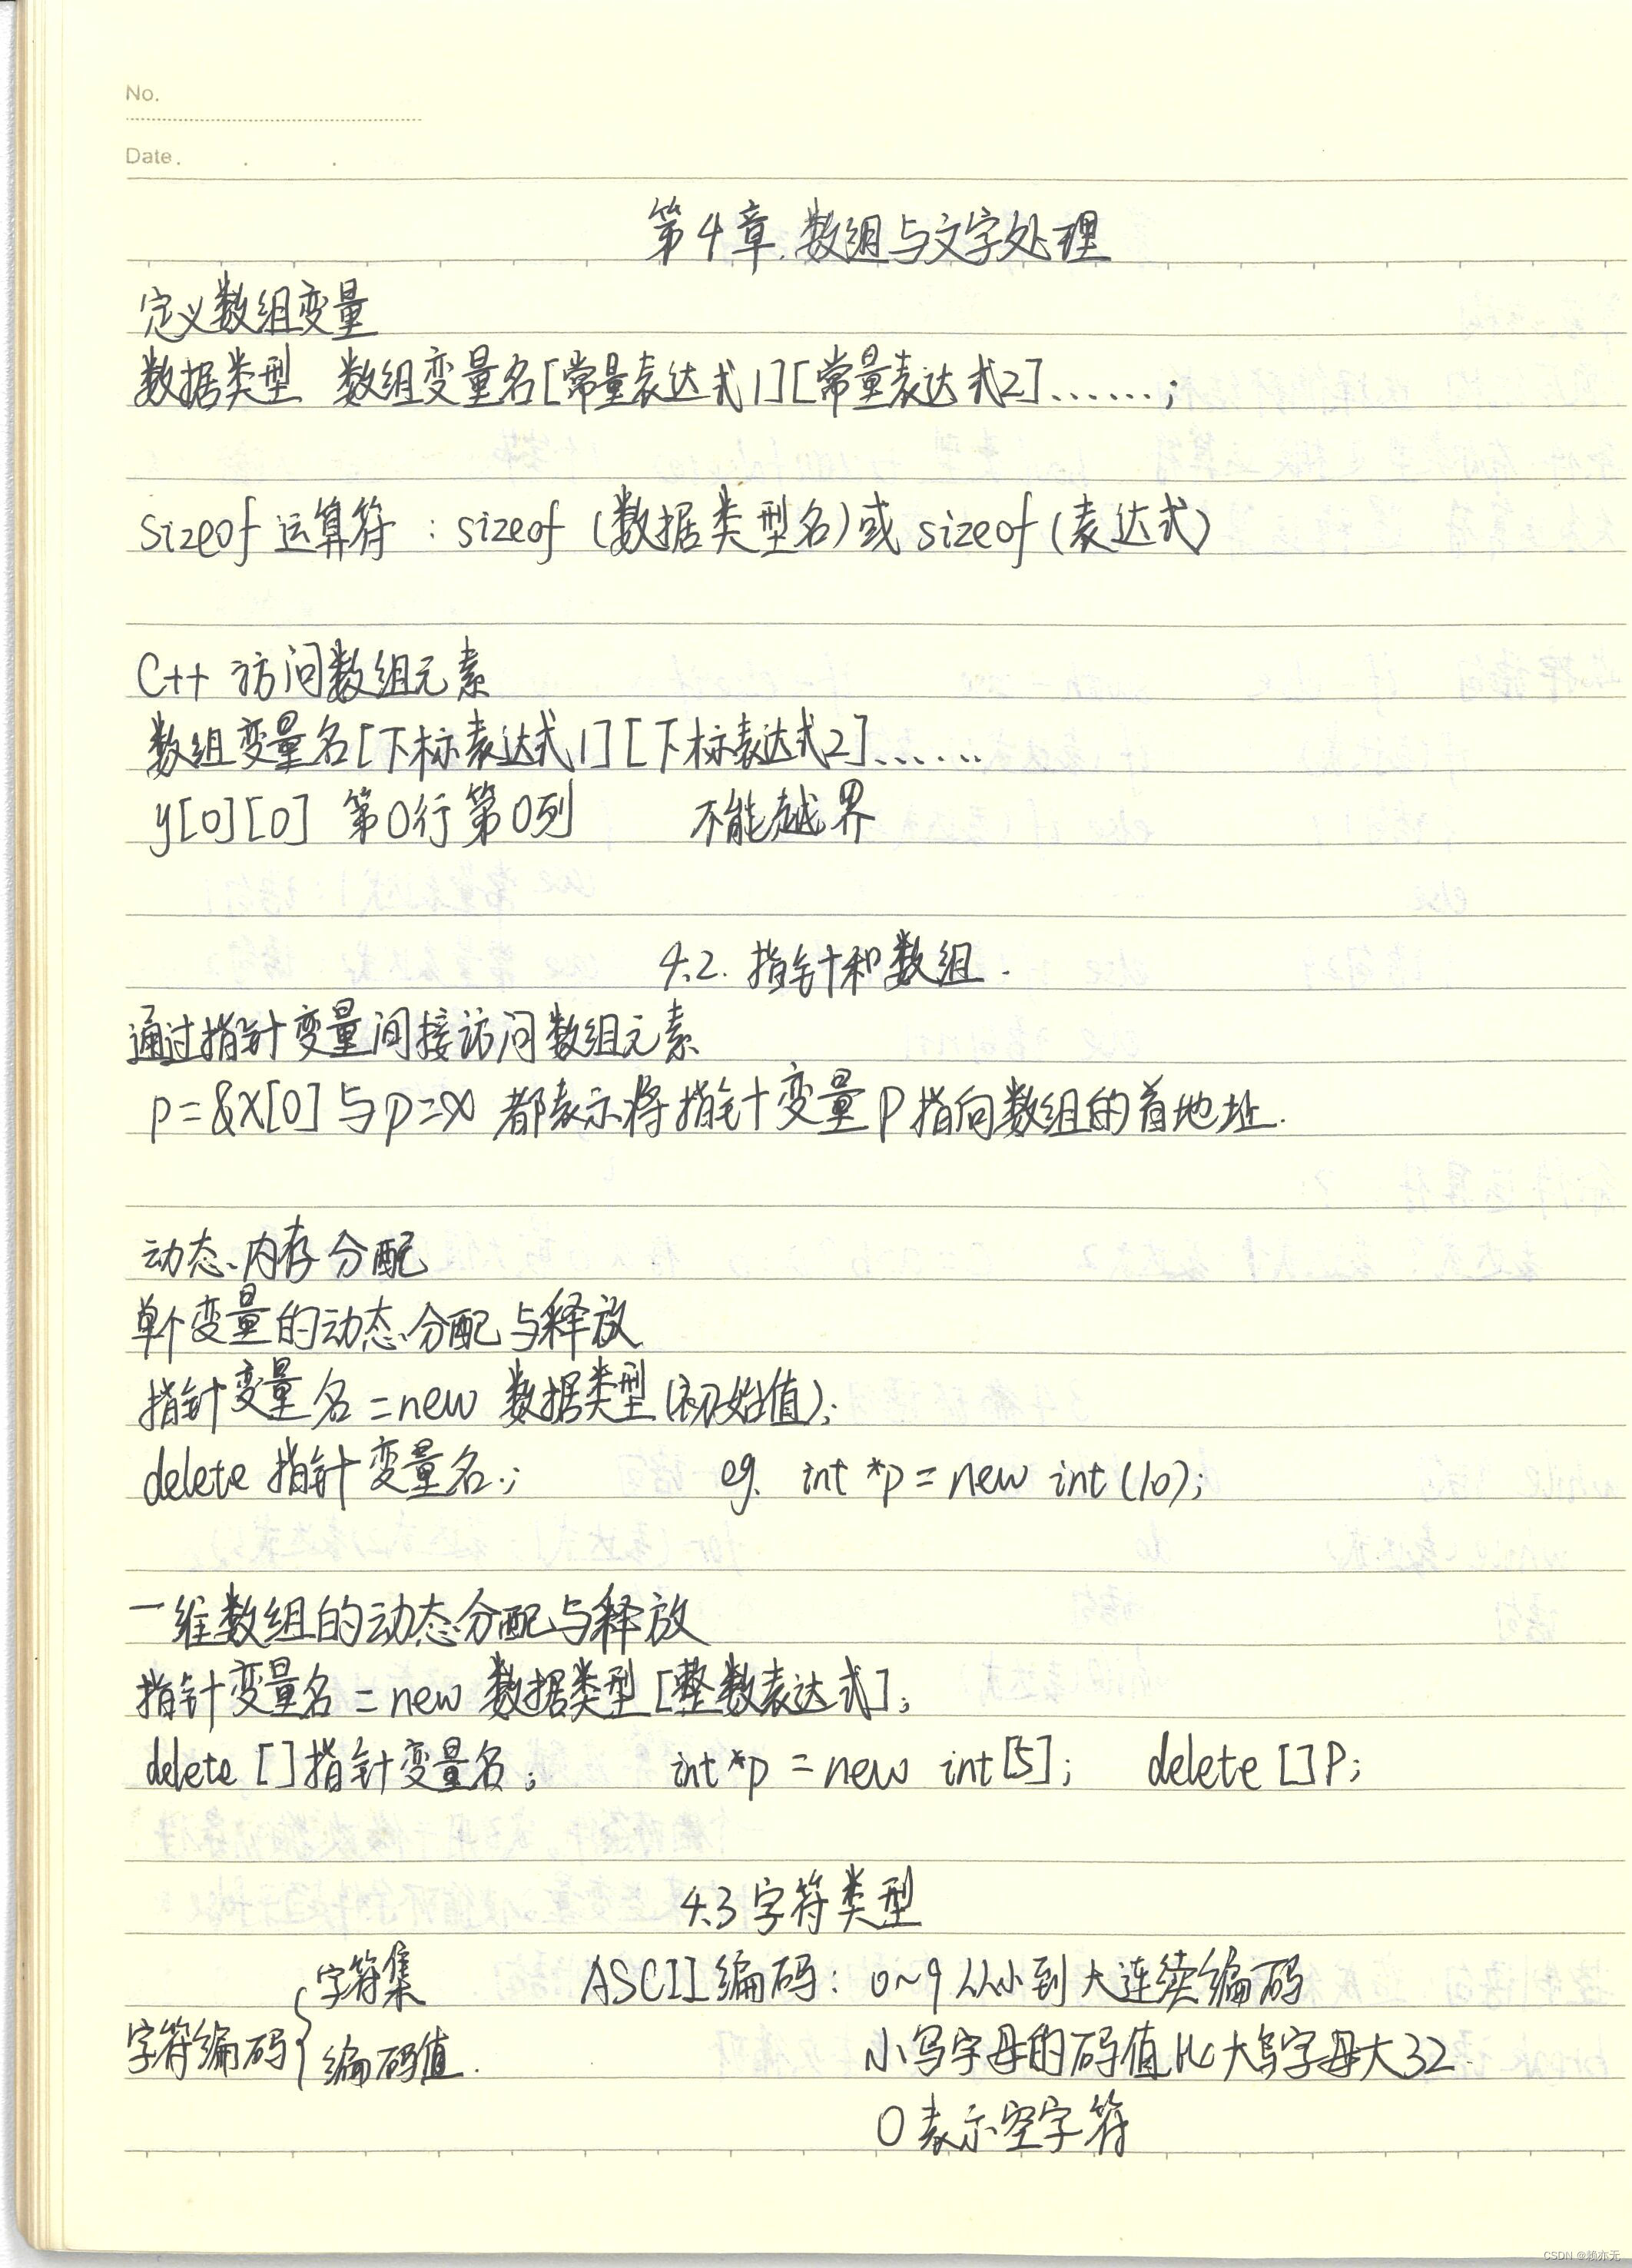 No.
Date.
第4章.数组与文字处理
定义数组变量
数据类型 数组变量名[常量表达式1][常量表达式2]......;
sizeof 运算符:sizeof (数据类型名)或 sizeof (表达式)
C++ 访问数组元素
数组变量名[下标表达式1][下标表达式2]......
y[0][0] 第0行第0列 不能越界
4.2. 指针和数组.
通过指针变量间接访问数组元素
p=&x[0]与p=x 都表示将指针变量P指向数组的首地址.
动态内存分配
单个变量的动态分配与释放
指针变量名=new 数据类型(初始值);
delete 指针变量名; eg. int *p = new int (10);
一维数组的动态分配与释放
指针变量名 = new 数据类型[整数表达式];
delete []指针变量名; int *p = new int[5]; delete []P;
4.3 字符类型
字符集 ASCII编码: 0~9从小到大连续编码
字符编码 编码值. 小写字母的码值比大写字母大32.
0表示空字符
CSDN @赖亦无